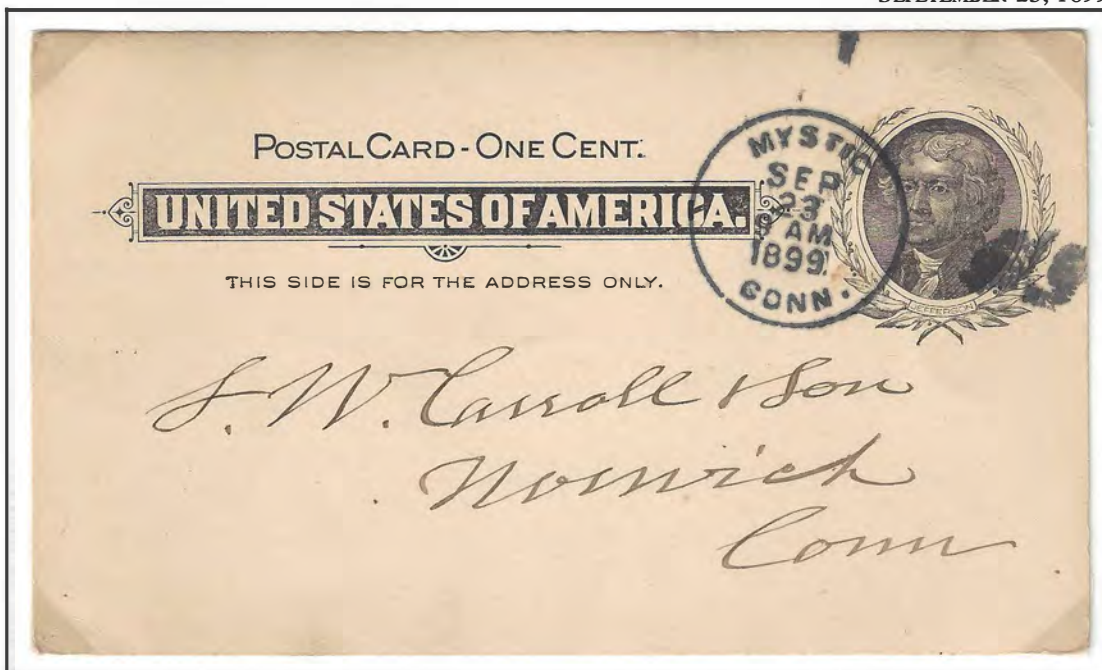 SEPTEMBER 23, 1899
POSTAL CARD - ONE CENT.
UNITED STATES OF AMERICA.
THIS SIDE IS FOR THE ADDRESS ONLY.
MYSTIC
SEP
23
AM
1899
CONN.
JEFFERSON
L. W. Carroll & Son
Norwich
Conn